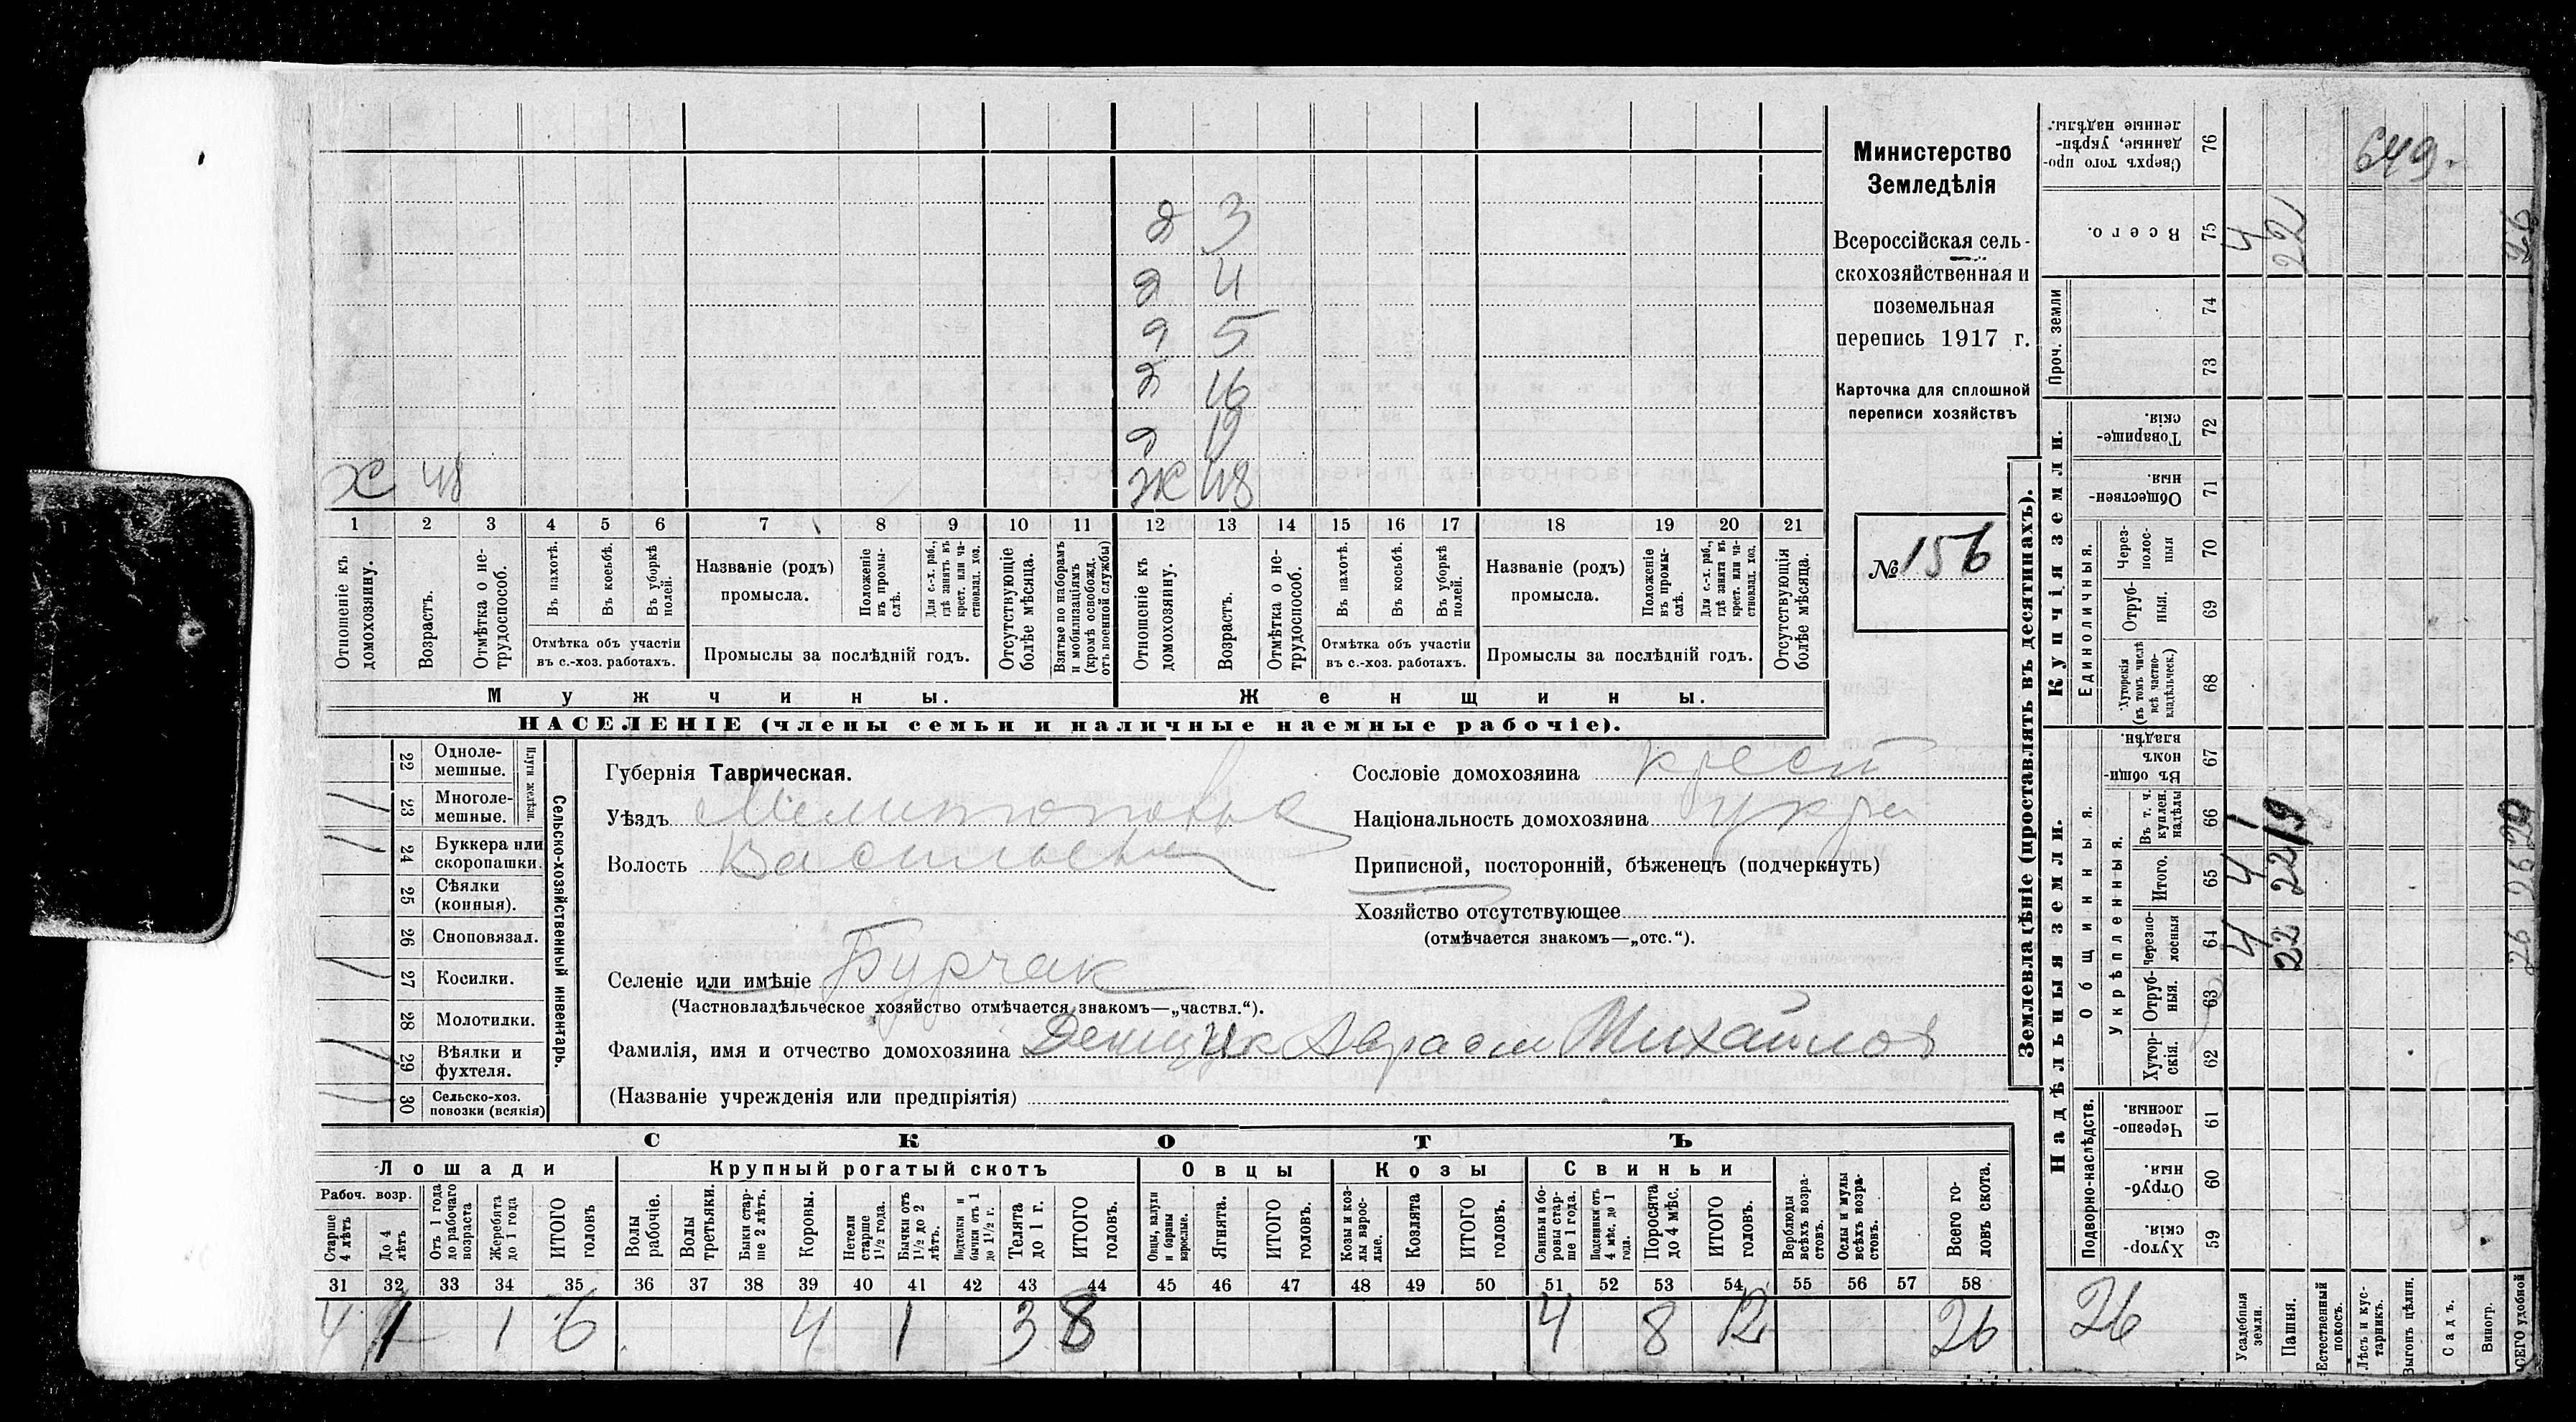 Министерство
Земледѣлія
Всероссійская сель-
скохозяйственная и
поземельная
перепись 1917 г.
Карточка для сплошной
переписи хозяйствъ
№ 156
д 3
д 4
д 5
д 16
д 19
Х 48 Ж 48
1 2 3 4 5 6 7 8 9 10 11 12 13 14 15 16 17 18 19 20 21
Отношеніе къ домохозяину.
Возрастъ.
Отмѣтка о не-
трудоспособ.
Въ пахотѣ.
Въ косьбѣ.
Въ уборкѣ
полей.
Отмѣтка объ участіи
въ с.-хоз. работахъ.
Названіе (родъ)
промысла.
Положеніе
въ промы-
слѣ.
Для с.-х. раб.,
гдѣ занятъ въ
крест. или ча-
стновлад. хоз.
Промыслы за послѣдній годъ.
Отсутствующіе
болѣе мѣсяца.
Взятые по наборамъ
и мобилизаціямъ
(кромѣ освобожд.
отъ военной службы)
Отношеніе къ
домохозяину.
Возрастъ.
Отмѣтка о не-
трудоспособ.
Въ пахотѣ.
Въ косьбѣ.
Въ уборкѣ
полей.
Отмѣтка объ участіи
въ с.-хоз. работахъ.
Названіе (родъ)
промысла.
Положеніе
въ промы-
слѣ.
Для с.-х. раб.,
гдѣ занята въ
крест. или ча-
стновлад. хоз.
Промыслы за послѣдній годъ.
Отсутствующія
болѣе мѣсяца.
Мужчины. Женщины.
НАСЕЛЕНІЕ (члены семьи и наличные наемные рабочіе).
22 Одноле-
мешные.
23 Многоле-
мешные.
Плуги желѣзн.
24 Буккера или
скоропашки.
25 Сѣялки
(конныя).
26 Сноповязал.
27 Косилки.
28 Молотилки.
29 Вѣялки и
фухтеля.
30 Сельско-хоз.
повозки (всякія)
Сельско-хозяйственный инвентарь.
Губернія Таврическая.
Уѣздъ Мелитопольс
Волость Васильевк
Сословіе домохозяина крест
Національность домохозяина укра
Приписной, посторонній, бѣженецъ (подчеркнуть)
Хозяйство отсутствующее
(отмѣчается знакомъ—„отс.“).
Селеніе или имѣніе Бурчак
(Частновладѣльческое хозяйство отмѣчается знакомъ—„частвл.“).
Фамилія, имя и отчество домохозяина Денщик Аврасим Михайлов
(Названіе учрежденія или предпріятія)
СКОТЪ
Лошади Крупный рогатый скотъ Овцы Козы Свиньи
Рабоч. возр.
Старше
4 лѣтъ
До 4
лѣтъ
Отъ 1 года
до рабочаго
возраста
Жеребята
до 1 года
ИТОГО
головъ
Волы
рабочіе.
Волы
третьяки.
Быки стар-
ше 2 лѣтъ.
Коровы.
Нетели
старше
1½ года.
Бычки отъ
1½ до 2
лѣтъ.
Подтелки и
бычки отъ 1
до 1½ г.
Телята
до 1 г.
ИТОГО
головъ.
Овцы, валухи
и бараны
взрослые.
Ягнята.
ИТОГО
головъ.
Козы и коз-
лы взрос-
лые.
Козлята
ИТОГО
головъ.
Свиньи и бо-
ровы стар-
ше 1 года.
Подсвинки отъ
4 мѣс. до 1
года.
Поросята
до 4 мѣс.
ИТОГО
головъ.
Верблюды
всѣхъ возра-
стовъ.
Ослы и мулы
всѣхъ возра-
стовъ.
Всего го-
ловъ скота.
31 32 33 34 35 36 37 38 39 40 41 42 43 44 45 46 47 48 49 50 51 52 53 54 55 56 57 58
4 1 1 6 4 1 3 8 4 8 12 26
Землевладѣніе (проставлять въ десятинахъ).
Купчія земли.
Надѣльныя земли.
Проч. земли
Единоличныя.
Общинныя.
Укрѣпленныя.
Подворно-наслѣдств.
Сверхъ того про-
данные, укрѣп-
ленные надѣлы. 76
649
Всего. 75 4 22 26
74
73
Товарище-
скія. 72
Обществен-
ныя 71
Через-
полос-
ныя 70
Отруб-
ныя. 69
Хуторскія
(въ томъ числѣ
всѣ частно-
владѣльческ.) 68
Въ общи-
номъ
владѣн. 67
Въ т. ч.
куплен.
надѣлы 66 1 19 20
Итого. 65 4 22 26
Черезпо-
лосныя 64 4 22 26
Отруб-
ныя. 63
Хутор-
скія. 62
Черезпо-
лосныя. 61
Отруб-
ныя. 60
Хутор-
скія. 59
26
Усадебныя
земли.
Пашня.
Естественный
покосъ.
Лѣсъ и кус-
тарникъ.
Выгонъ цѣлин.
Садъ.
Виногр.
ВСЕГО удобной